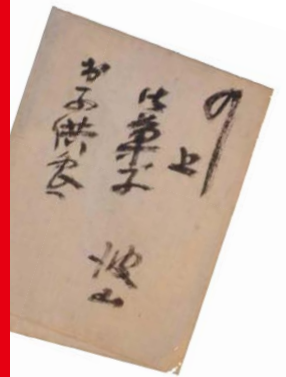 のし
上
御菓子
お子供衆へ
波山